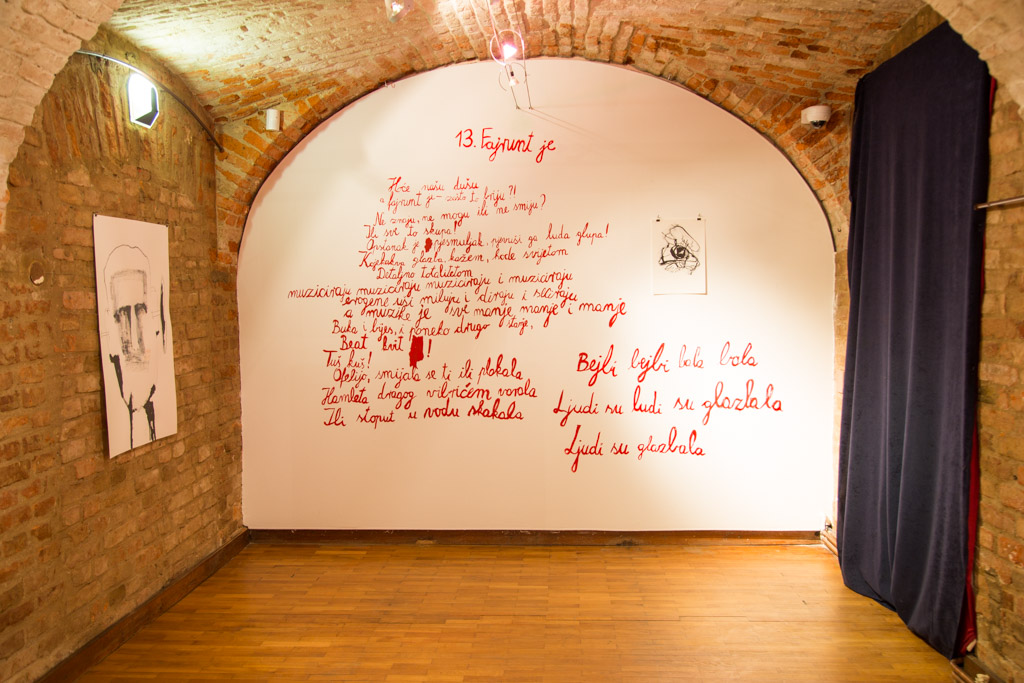 13. Fajrunt je
Hoće našu dušu
a fajrunt je - zašto to briju?!
Ne znaju, ne mogu ili ne smiju?
Ili sve to skupa!
Opstanak je pjesmuljak, pjevuši ga luda glupa!
Kojekakva glazba, kažem, hode svijetom
Detaljno totalitetom
muziciraju muziciraju muziciraju i muziciraju
erogene uši miluju i diraju i sliraju
a muzike je sve manje, manje i manje
Buka i bijes, i poneko drugo stanje,
Beat bit !
Tuš kuš!
Ofelijo, smijala se ti ili plakala
Hamleta dragog vibrićem varala
Ili stoput u vodu skakala
Bejbi bejbi bala bala
Ljudi su ludi su glazbala
Ljudi su glazbala